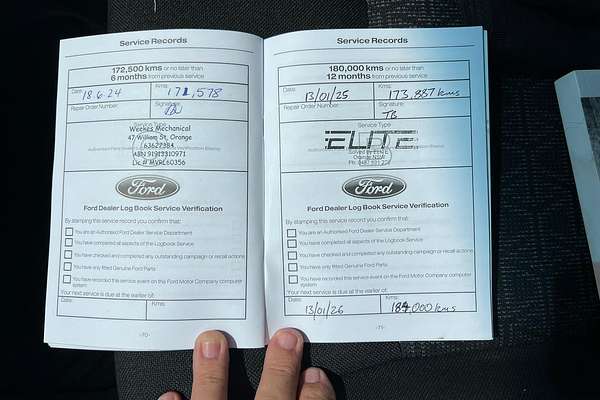 Service Records
172,500 kms or no later than
6 months from previous service
Date: 18.6.24 Kms: 171,578
Repair Order Number: Signature:
Service Type
Weekes Mechanical
47 William St, Orange
63627384
ABN 91913310971
Lic # MVRL60356
Ford
Ford Dealer Log Book Service Verification
By stamping this service record you confirm that:
You are an Authorised Ford Dealer Service Department
You have completed all aspects of the Logbook Service
You have checked and completed any outstanding campaign or recall actions
You have only fitted Genuine Ford Parts
You have recorded this service event on the Ford Motor Company computer
system
Your next service is due at the earlier of:
Date: Kms:
-70-
Service Records
180,000 kms or no later than
12 months from previous service
Date: 13/01/25 Kms: 173,887 kms
Repair Order Number: Signature:
TB
Service Type
ELITE
Orange NSW
Ford
Ford Dealer Log Book Service Verification
By stamping this service record you confirm that:
You are an Authorised Ford Dealer Service Department
You have completed all aspects of the Logbook Service
You have checked and completed any outstanding campaign or recall actions
You have only fitted Genuine Ford Parts
You have recorded this service event on the Ford Motor Company computer
system
Your next service is due at the earlier of:
Date: Kms:
13/01/26 184,000 kms
-71-